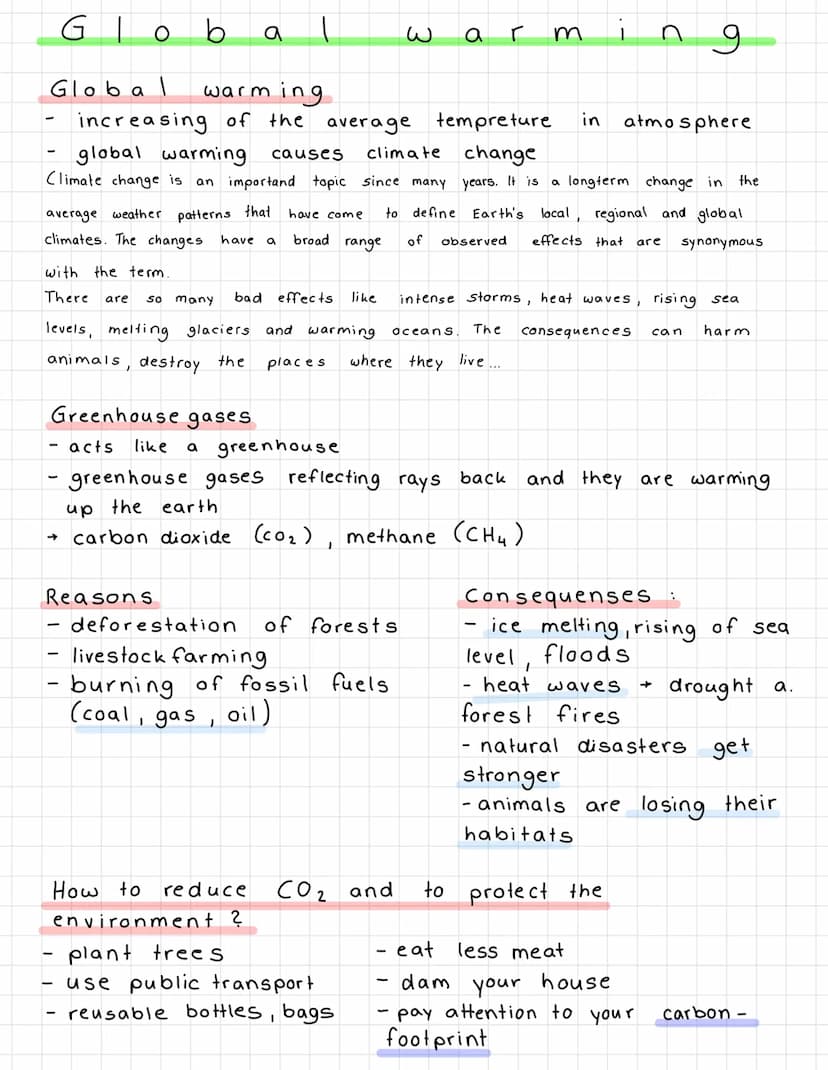 Global warming
Global warming
- increasing of the average tempreture in atmosphere
- global warming causes climate change
Climate change is an importand topic since many years. It is a longterm change in the
average weather patterns that have come to define Earth's local, regional and global
climates. The changes have a broad range of observed effects that are synonymous
with the term.
There are so many bad effects like intense storms, heat waves, rising sea
levels, melting glaciers and warming oceans. The consequences can harm
animals, destroy the places where they live...
Greenhouse gases
- acts like a greenhouse
- greenhouse gases reflecting rays back and they are warming
up the earth
→ carbon dioxide (CO₂), methane (CH₄)
Reasons
- deforestation of forests
- livestock farming
- burning of fossil fuels
(coal, gas, oil)
Consequenses:
- ice melting, rising of sea
level, floods
- heat waves → drought a.
forest fires
- natural disasters get
stronger
- animals are losing their
habitats
How to reduce CO₂ and to protect the
environment?
- plant trees
- use public transport
- reusable bottles, bags
- eat less meat
- dam your house
- pay attention to your carbon-
footprint